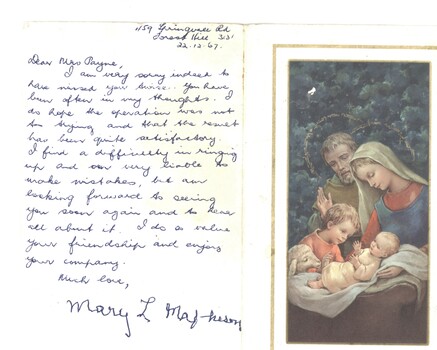 1159 Springvale Rd
Forest Hill 3131
22.12.67.
Dear Mrs Payne,
I am very sorry indeed to
have missed you twice. You have
been often in my thoughts. I
do hope the operation was not
too trying and that the result
has been quite satisfactory.
I find a difficulty in ringing
up and am very liable to
make mistakes, but am
looking forward to seeing
you soon again and to hear
all about it. I do so value
your friendship and enjoy
your company.
Much love,
Mary L